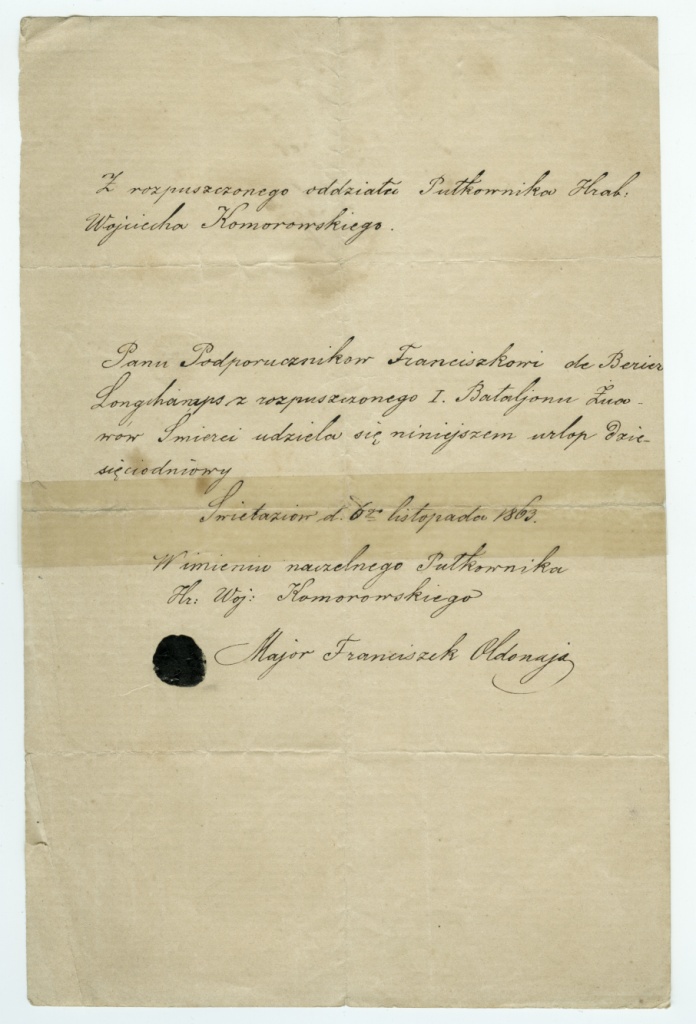 Z rozpuszczonego oddziału Pułkownika Hrab:
Wojciecha Komorowskiego.
Panu Podporucznikow Franciszkowi de Berier
Longchamps z rozpuszczonego I. Bataljonu Żua-
wów Śmierci udziela się niniejszem urlop dzie-
sięciodniowy
d. 6go listopada 1863.
W imieniu naczelnego Pułkownika
Hr: Woj: Komorowskiego
Major Franciszek